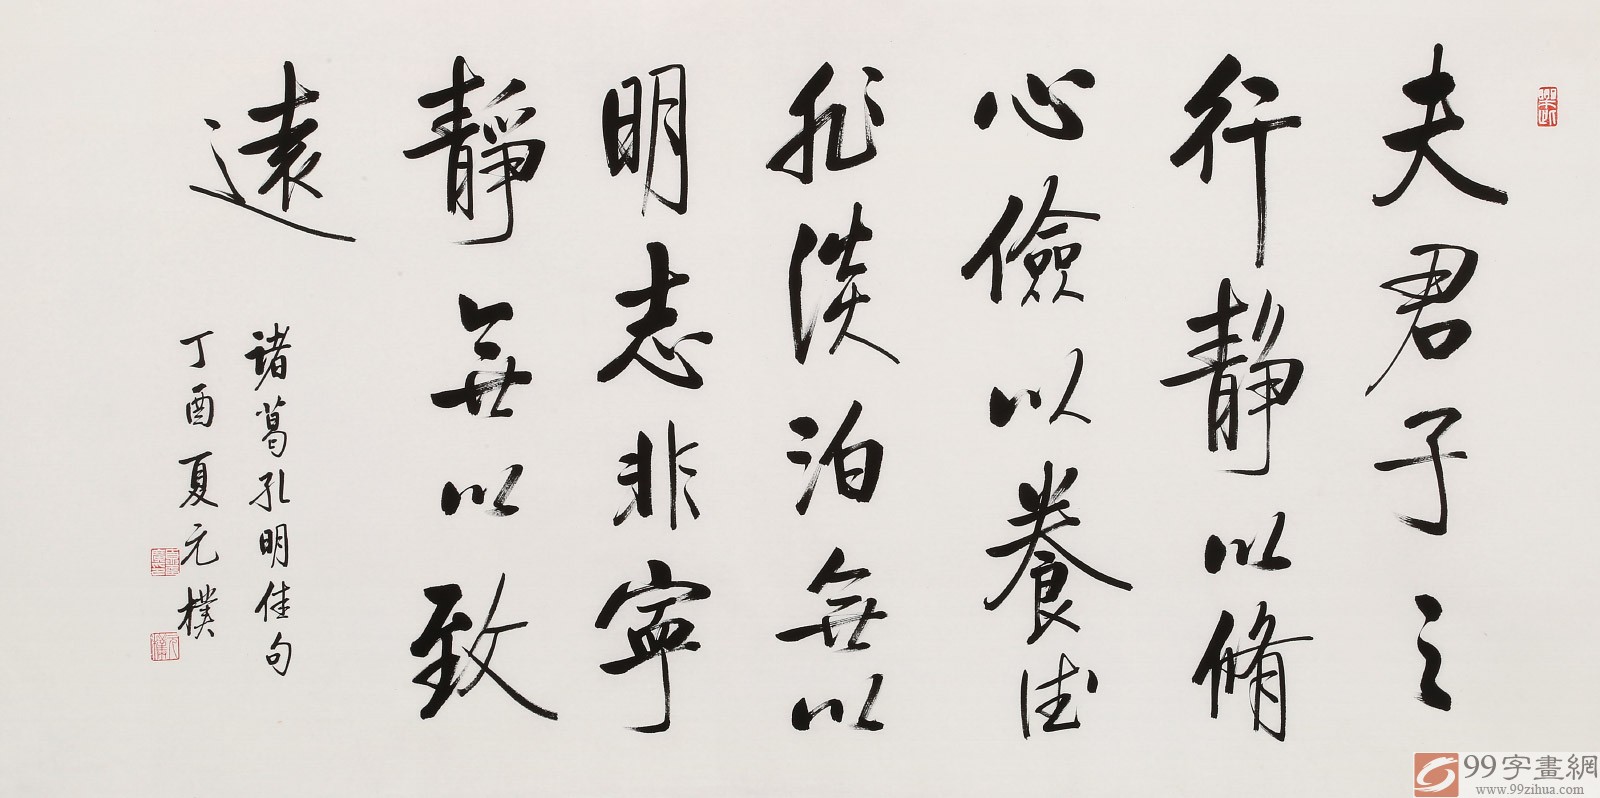 夫君子之
行静以脩
心儉以養德
非淡泊無以
明志非寧
靜無以致
遠
诸葛孔明佳句
丁酉夏元樸
99字畫網
www.99zihua.com